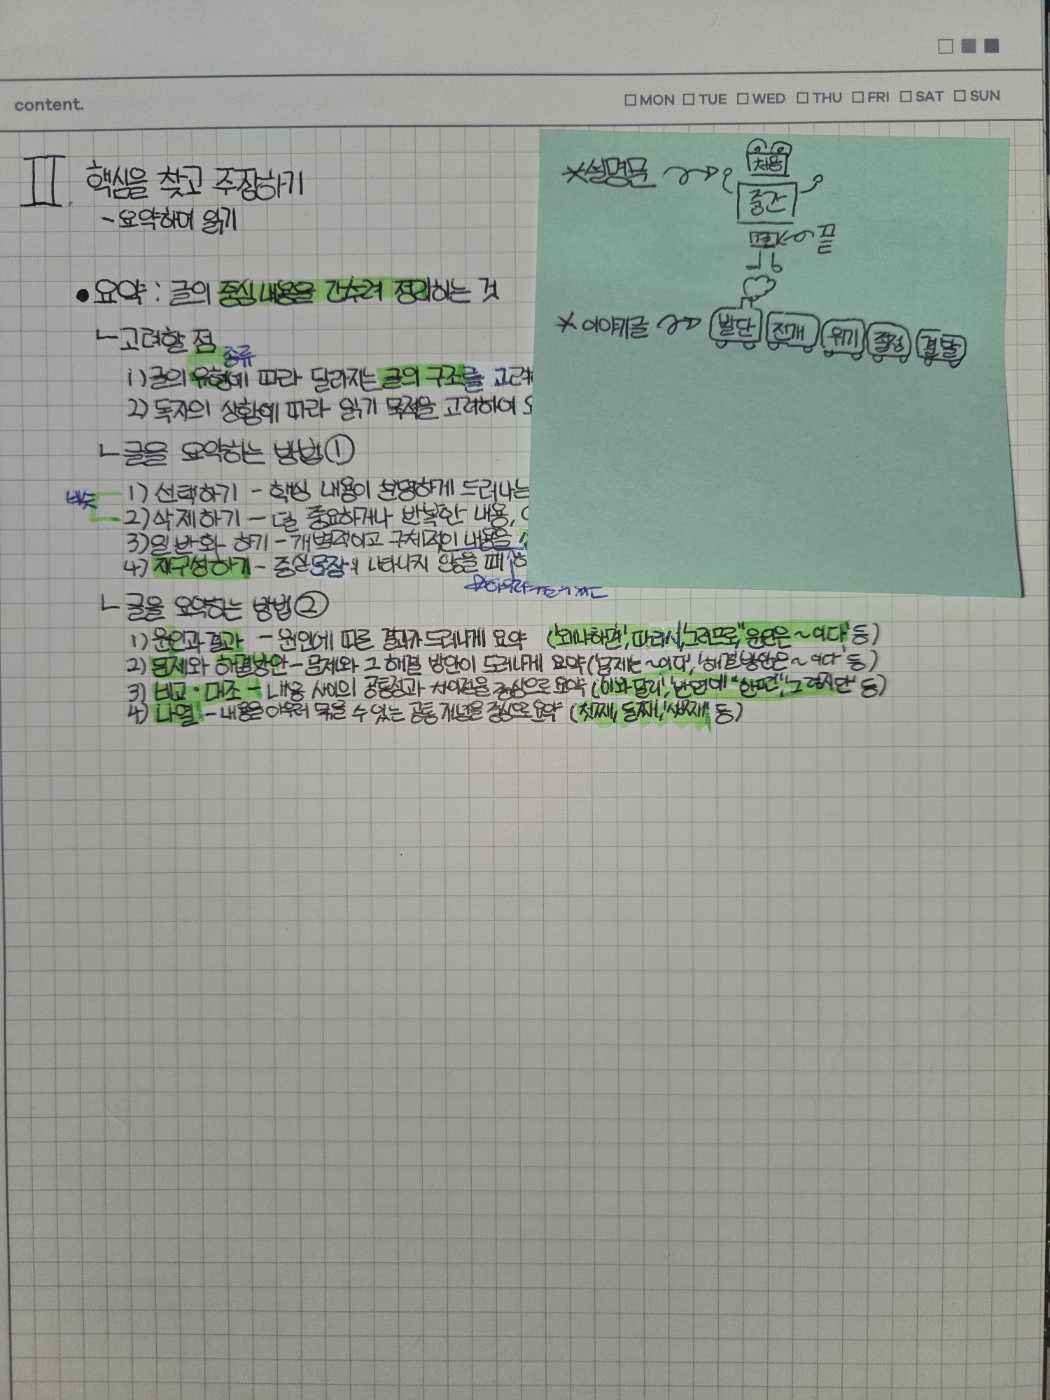 content.
□MON □TUE □WED □THU □FRI □SAT □SUN
Ⅱ. 핵심을 찾고 주장하기
- 요약하며 읽기
● 요약 : 글의 중심 내용을 간추려 정리하는 것
ㄴ고려할 점
종류
1) 글의 유형에 따라 달라지는 글의 구조를 고려
2) 독자의 상황에 따라 읽기 목적을 고려하여
ㄴ글을 요약하는 방법①
비슷
1) 선택하기 - 핵심 내용이 분명하게 드러나는
2) 삭제하기 - 덜 중요하거나 반복한 내용,
3) 일반화 하기 - 개별적이고 구체적인 내용을
4) 재구성하기 - 중심문장이 나타나지 않을 때
ㄴ글을 요약하는 방법②
1) 원인과 결과 - 원인에 따른 결과가 드러나게 요약 ('왜냐하면', '따라서', '그러므로', '원인은 ~이다' 등)
2) 문제와 해결방안 - 문제와 그 해결 방안이 드러나게 요약 ('문제는 ~이다', '해결 방안은 ~이다' 등)
3) 비교·대조 - 내용 사이의 공통점과 차이점을 중심으로 요약 ('이와 달리', '반면에', '한편', '그렇지만' 등)
4) 나열 - 내용을 아우러 묶을 수 있는 공통 개념을 중심으로 요약 ('첫째', '둘째', '셋째' 등)
*설명문
처음
중간
끝
*이야기글
발단 전개 위기 절정 결말